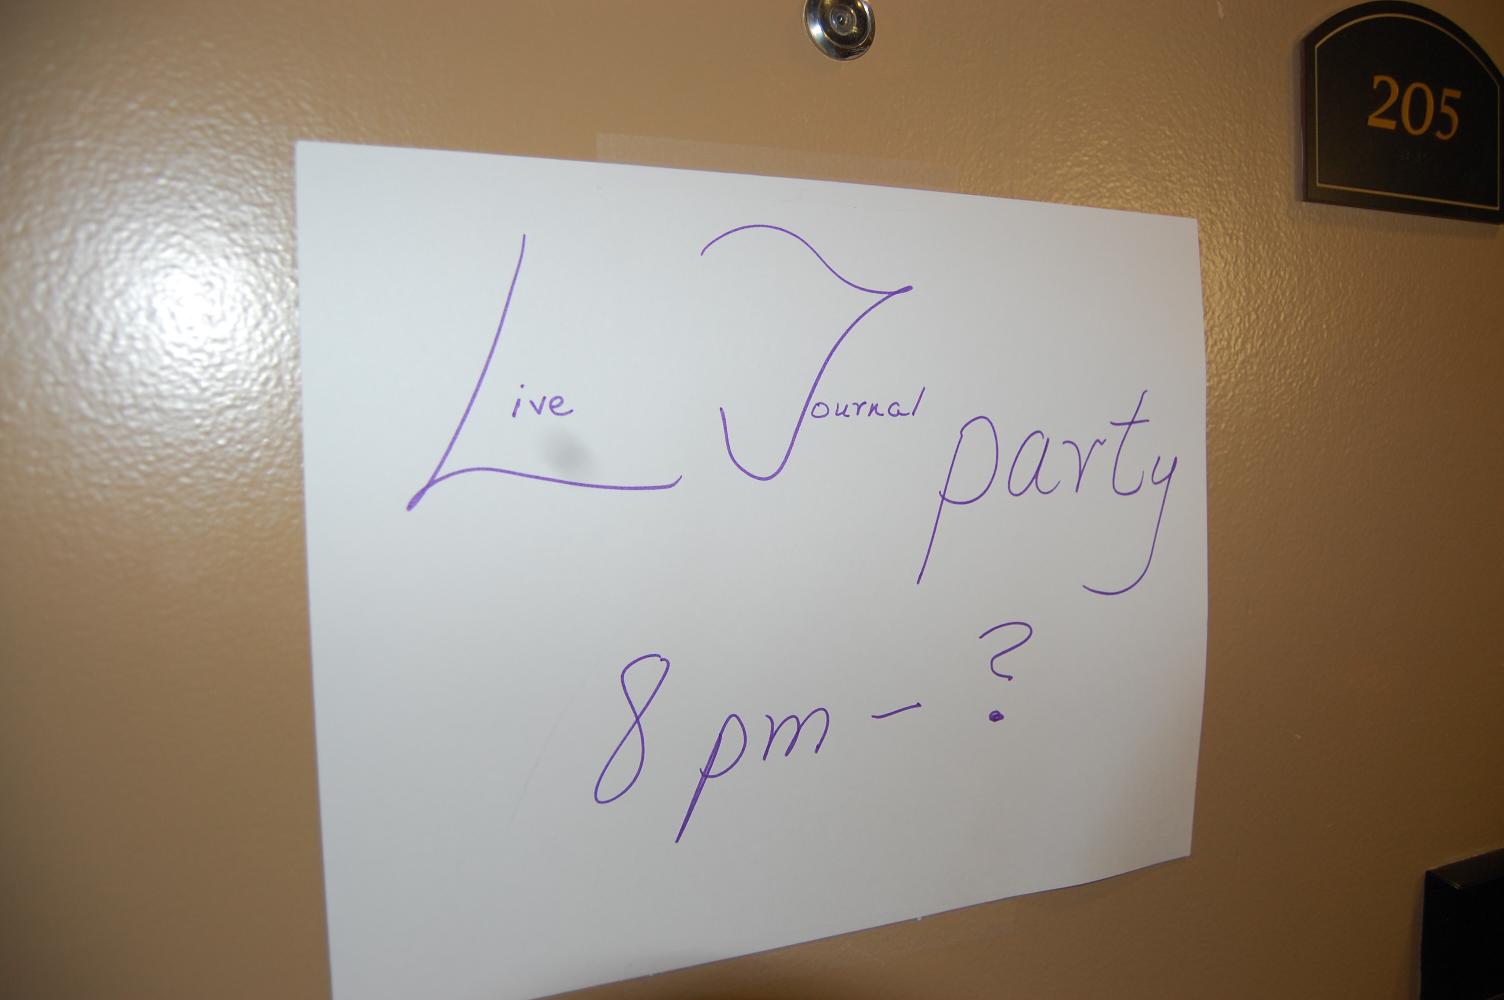 205
Live Journal party
8 pm - ?